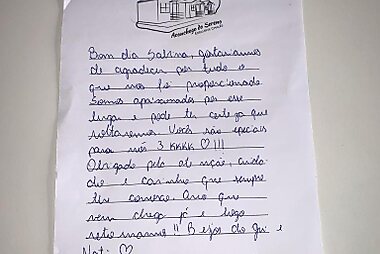 Aconchego do Sereno
Bom dia Sabrina, gostaríamos
de agradecer por tudo o
que nos foi proporcionado
somos apaixonados por esse
lugar e pode ter certeza que
voltaremos. Vocês são especiais
para nós 3 KKKK ♡!!!
Obrigado pela atenção, cuida-
do e carinho que sempre
tem conosco. Ano que
vem chega já e logo
retornamos!! Beijos do Gui e
Nati ♡